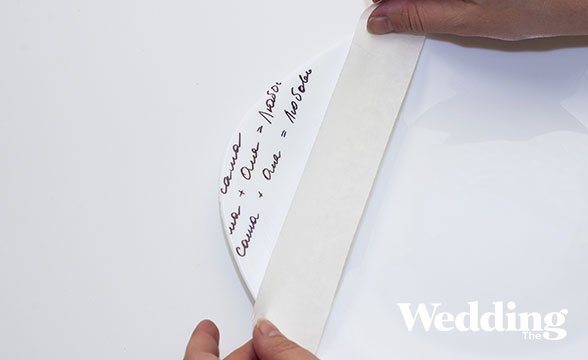 саша
ша + Оля = Любо
саша + Оля = Любовь
Wedding
The